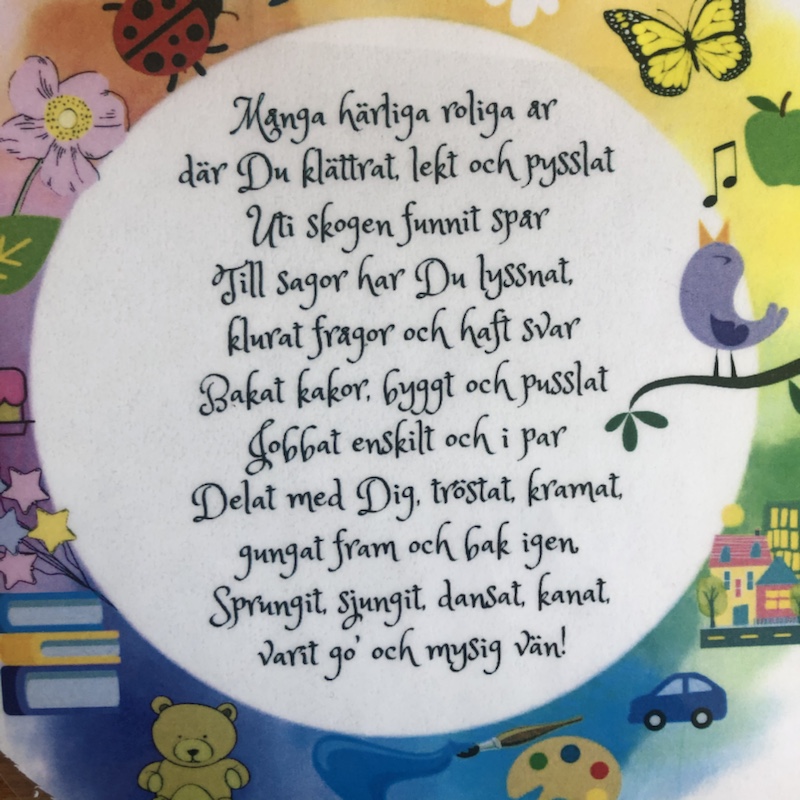 Många härliga roliga år
där Du klättrat, lekt och pysslat
Uti skogen funnit spår
Till sagor har Du lyssnat,
klurat frågor och haft svar
Bakat kakor, byggt och pusslat
Jobbat enskilt och i par
Delat med Dig, tröstat, kramat,
gungat fram och bak igen
Sprungit, sjungit, dansat, kanat,
varit go' och mysig vän!